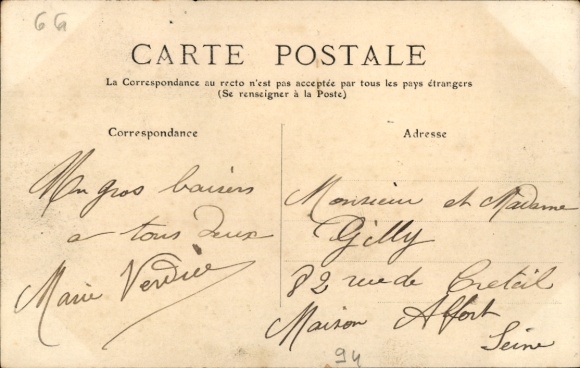 66
CARTE POSTALE
La Correspondance au recto n'est pas acceptée par tous les pays étrangers
(Se renseigner à la Poste)
Correspondance
Adresse
Un gros baisers
a tous deux
Marie Verdie
Monsieur et Madame
Gilly
82 rue de Creteil
Maison Alfort
Seine
94